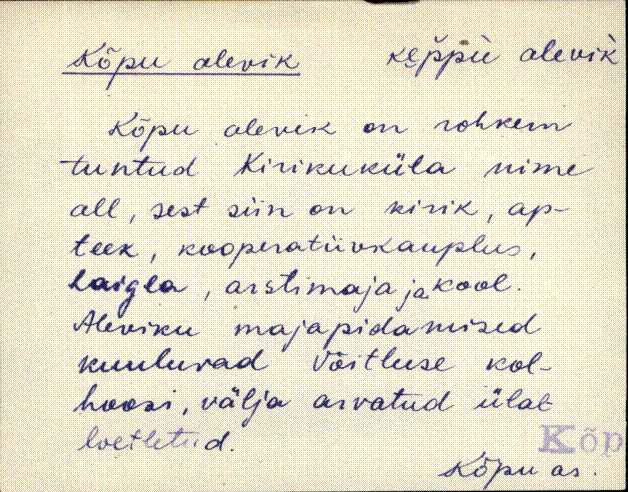 Kõpu alevik keppü alevik
Kõpu alevik on rohkem
tuntud Kirikuküla nime
all, sest siin on kirik, ap-
teek, kooperatiivkauplus,
haigla, arstimaja ja kool.
Aleviku majapidamised
kuuluvad Võitluse kol-
hoosi, välja arvatud ülal
loetletud.
Kõp
Kõpu as.